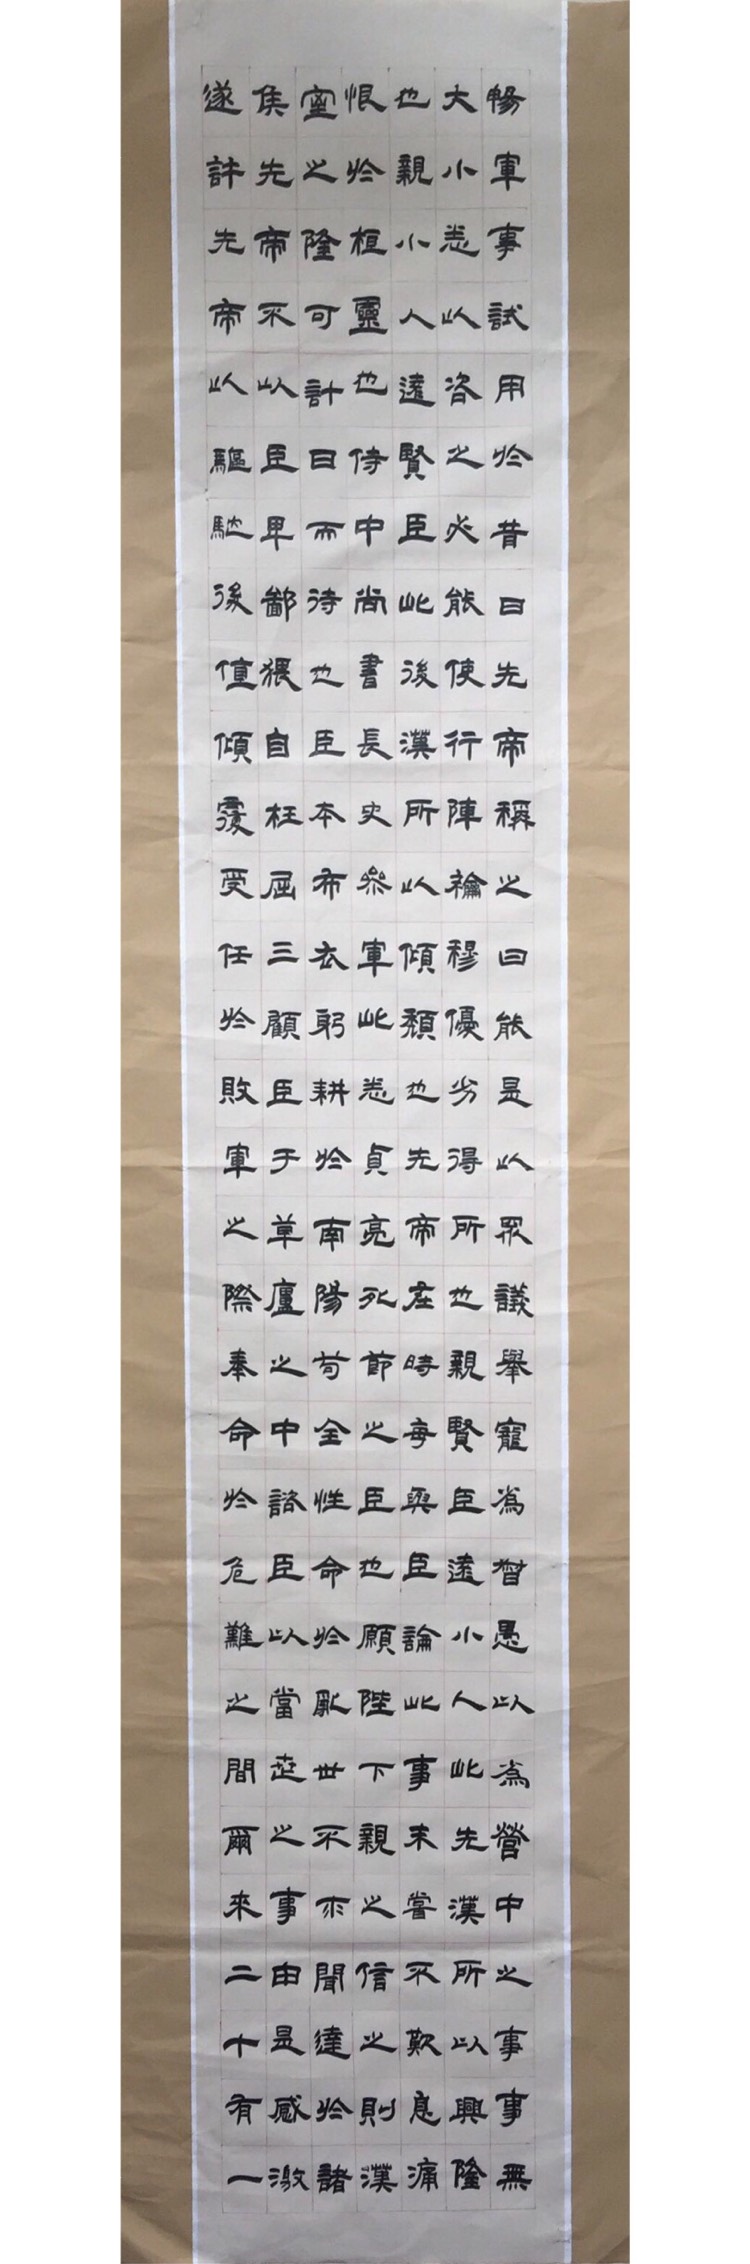 暢軍事試用於昔日先帝稱之曰能是以眾議舉寵為督愚以為營中之事事無
大小悉以咨之必能使行陣禴穆優劣得所也親賢臣遠小人此先漢所以興隆
也親小人遠賢臣此後漢所以傾頹也先帝在時每與臣論此事未嘗不歎息痛
恨於桓靈也侍中尚書長史參軍此悉貞亮死節之臣也願陛下親之信之則漢
室之隆可計日而待也臣本布衣躬耕於南陽苟全性命於亂世不求聞達於諸
侯先帝不以臣卑鄙猥自枉屈三顧臣于草廬之中諮臣以當世之事由是感激
遂許先帝以驅馳後值傾覆受任於敗軍之際奉命於危難之間爾來二十有一